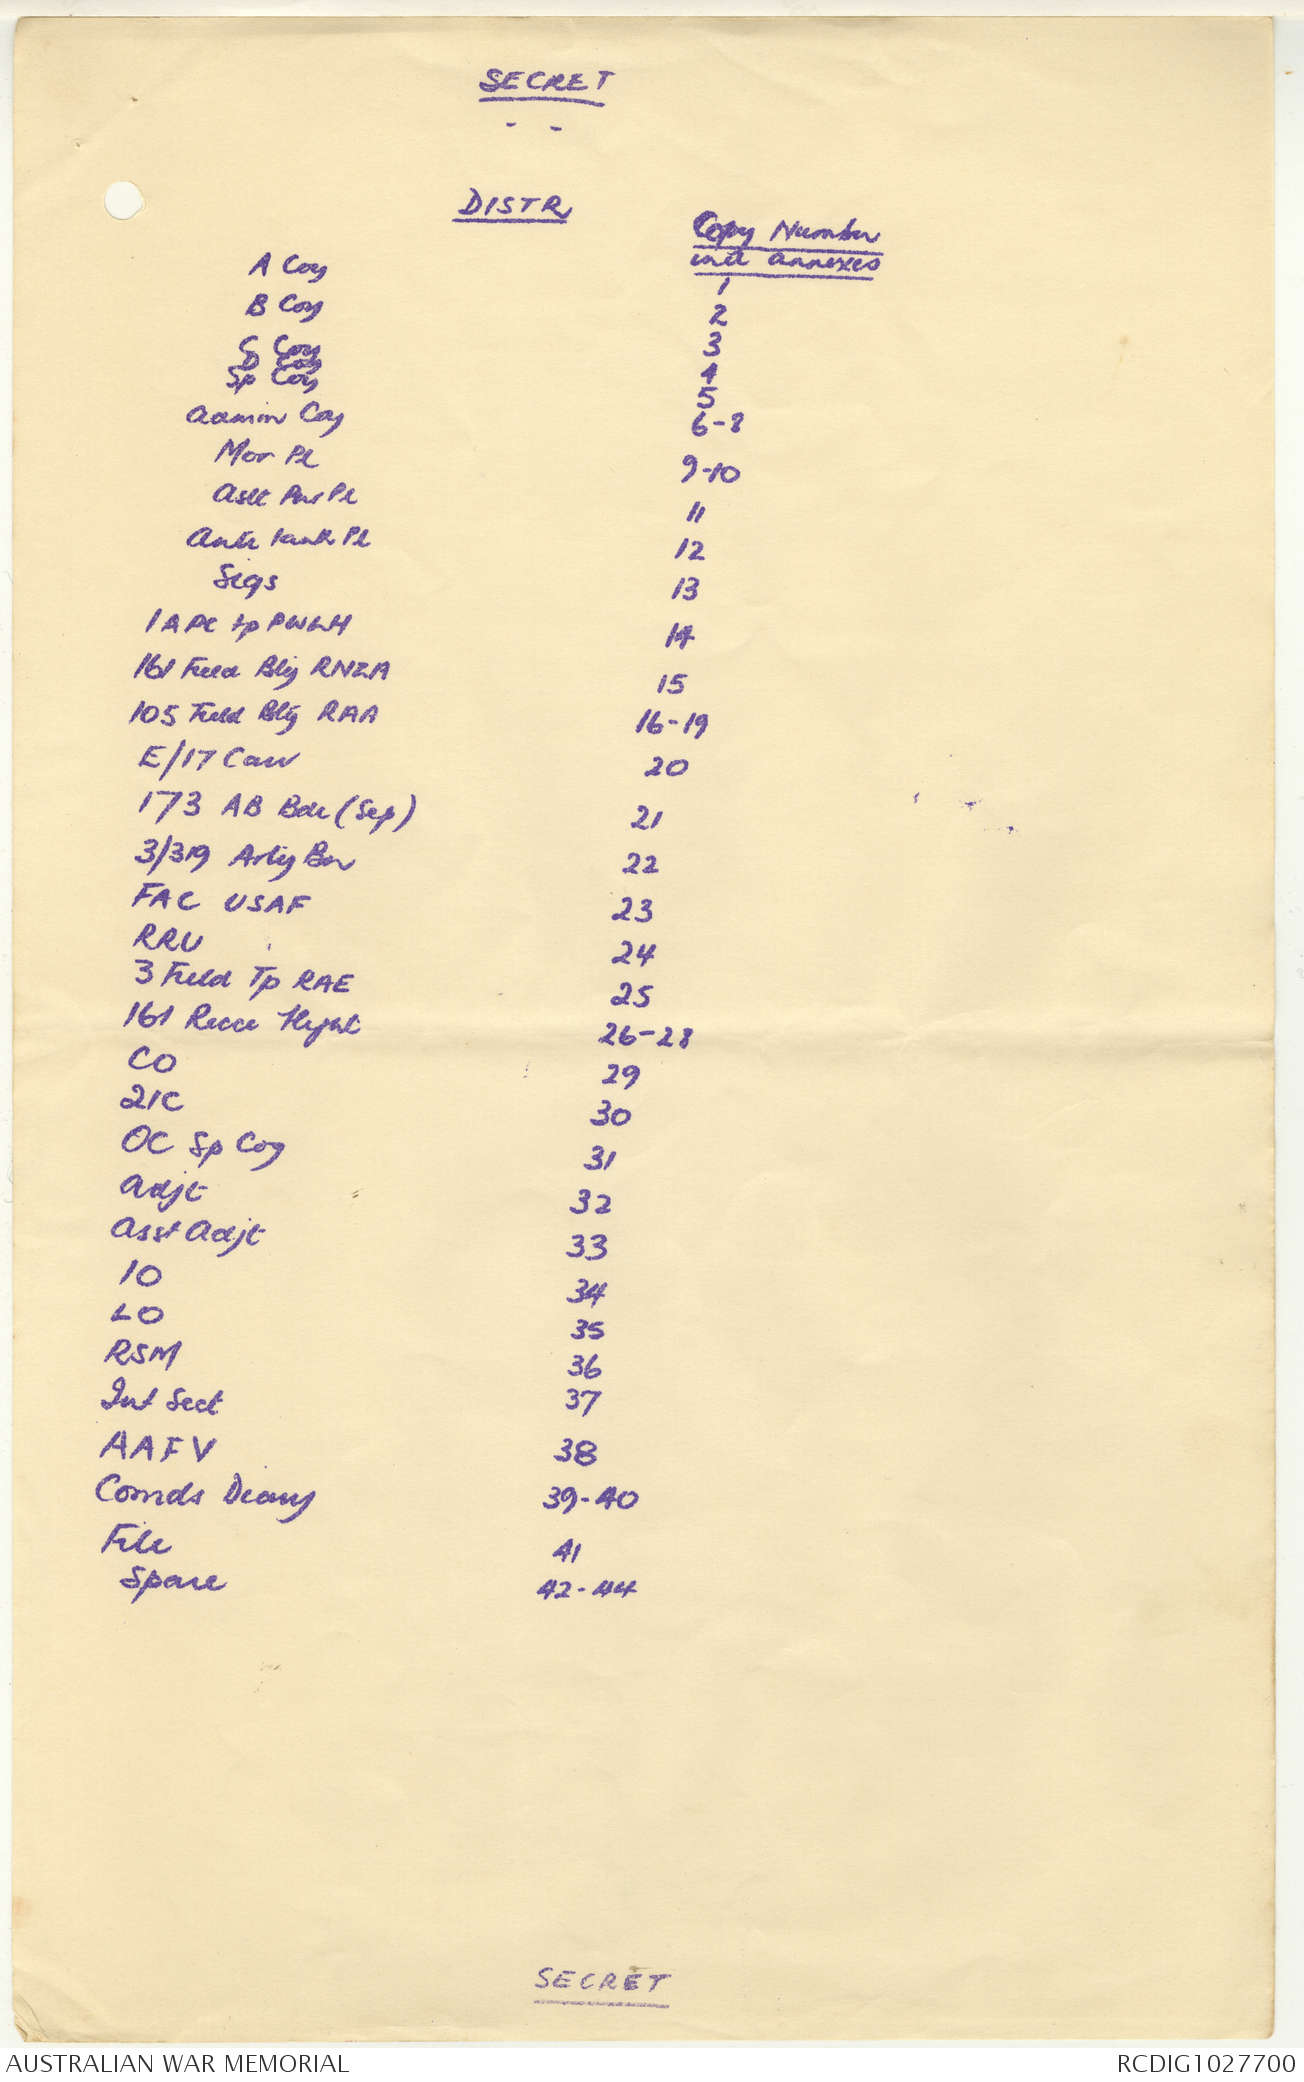 SECRET
- -
DISTR
Copy Number
incl annexes
A Coy 1
B Coy 2
C Coy 3
D Coy 4
Sp Coy 5
Admin Coy 6-8
Mor Pl 9-10
Aslt Pnr Pl 11
Anti tank Pl 12
Sigs 13
1 APC tp PWLH 14
161 Field Bty RNZA 15
105 Field Bty RAA 16-19
E/17 Cav 20
173 AB Bde (Sep) 21
3/319 Arty Bn 22
FAC USAF 23
RRU 24
3 Field Tp RAE 25
161 Recce flight 26-28
CO 29
2IC 30
OC Sp Coy 31
Adjt 32
Asst Adjt 33
IO 34
LO 35
RSM 36
Int Sect 37
AAFV 38
Comds Diary 39-40
File 41
Spare 42-44
SECRET
AUSTRALIAN WAR MEMORIAL RCDIG1027700